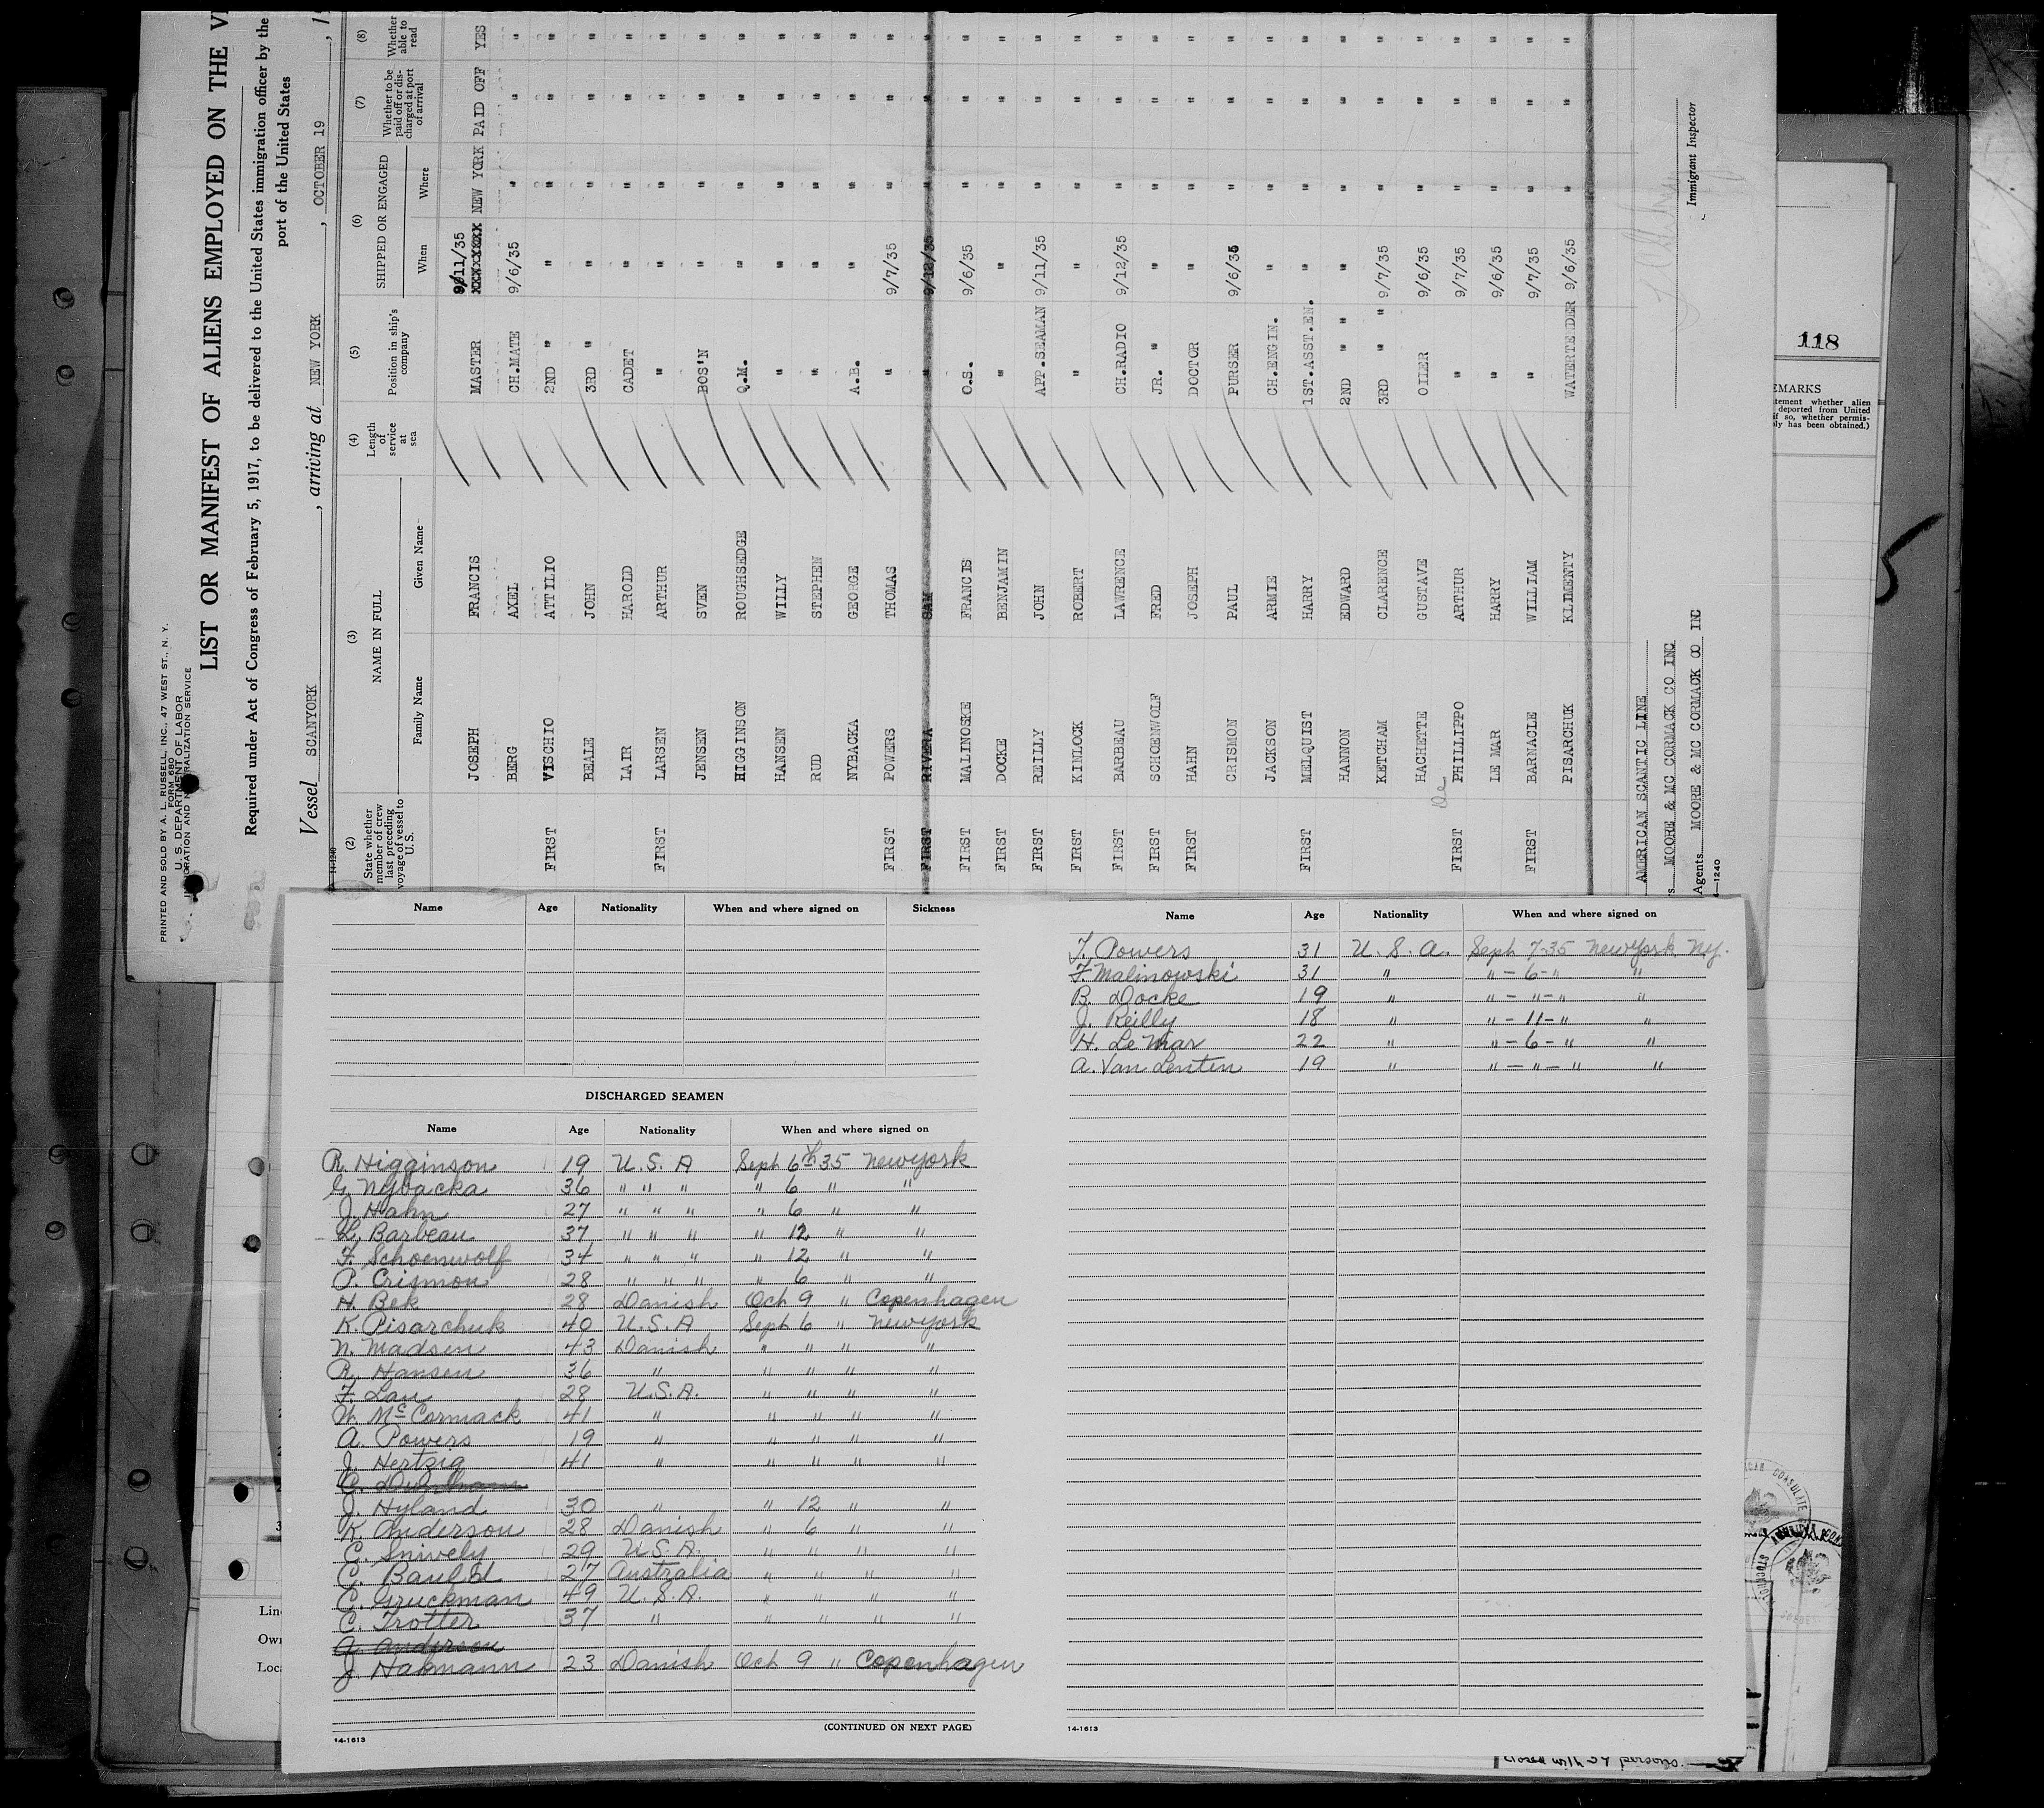 PRINTED AND SOLD BY A. L. RUSSELL, INC., 47 WEST ST., N. Y.
FORM 680
U. S. DEPARTMENT OF LABOR
IMMIGRATION AND NATURALIZATION SERVICE
LIST OR MANIFEST OF ALIENS EMPLOYED ON THE V
Required under Act of Congress of February 5, 1917, to be delivered to the United States immigration officer by the
port of the United States
Vessel SCANYORK, arriving at NEW YORK, OCTOBER 19, 1
14-1240
(2) (3) (4) (5) (6) (7) (8)
State whether member of crew last preceding voyage of vessel to U.S. NAME IN FULL Length of service at sea Position in ship's company SHIPPED OR ENGAGED Whether to be paid off or discharged at port of arrival Whether able to read
Family Name Given Name When Where
JOSEPH FRANCIS MASTER 9/11/35 NEW YORK PAID OFF YES
BERG AXEL CH.MATE 9/6/35 " " "
FIRST VISCHIO ATTILIO 2ND " " " " "
BEALE JOHN 3RD " " " " "
LAIR HAROLD CADET " " " "
FIRST LARSEN ARTHUR " " " " "
JENSEN SVEN BOS'N " " " "
HIGGINSON ROUGHSEDGE Q.M. " " " "
HANSEN WILLY " " " " "
RUD STEPHEN " " " " "
NYBACKA GEORGE A.B. " " " "
FIRST POWERS THOMAS " 9/7/35 " " "
FIRST RIVERA SAM " 9/12/35 " " "
FIRST MALINOSKE FRANCIS O.S. 9/6/35 " " "
FIRST DOCKE BENJAMIN " " " " "
FIRST REILLY JOHN APP.SEAMAN 9/11/35 " " "
FIRST KINLOCK ROBERT " " " " "
FIRST BARBEAU LAWRENCE CH.RADIO 9/12/35 " " "
FIRST SCHOENWOLF FRED JR. " " " " "
FIRST HAHN JOSEPH DOCTOR " " " "
CRISMON PAUL PURSER 9/6/35 " " "
JACKSON ARMIE CH.ENGIN. " " " "
FIRST MELQUIST HARRY 1ST.ASST.EN. " " " "
HANNON EDWARD 2ND " " " " " "
KETCHAM CLARENCE 3RD " " 9/7/35 " " "
HACHETTE GUSTAVE OILER 9/6/35 " " "
FIRST De PHILLIPPO ARTHUR " 9/7/35 " " "
LE MAR HARRY " 9/6/35 " " "
FIRST BARNACLE WILLIAM " 9/7/35 " " "
PISARCHUK KLIMENTY WATERTENDER 9/6/35 " " "
AMERICAN SCANTIC LINE
s MOORE & MC CORMACK CO INC
Agents MOORE & MC CORMACK CO INC
—1240
Immigrant Inspector
118
EMARKS
tement whether alien
deported from United
if so, whether permis-
ly has been obtained.)
Name Age Nationality When and where signed on Sickness
DISCHARGED SEAMEN
Name Age Nationality When and where signed on
R. Higginson 19 U. S. A Sept 6th 35 New York
G. Nybacka 36 " " " " 6 " "
J. Hahn 27 " " " " 6 " "
L. Barbeau 37 " " " " 12 " "
F. Schoenwolf 34 " " " " 12 " "
P. Crismon 28 " " " " 6 " "
H. Bek 28 Danish Oct 9 " Copenhagen
K. Pisarchuk 40 U. S. A Sept 6 " New York
N. Madsen 43 Danish " " " "
R. Hansen 36 " " " " "
F. Lau 28 U.S.A. " " " "
W. McCormack 41 " " " " "
A. Powers 19 " " " " "
J. Hertzig 41 " " " " "
C. Durnham
J. Hyland 30 " " 12 " "
K. Anderson 28 Danish " 6 " "
E. Snively 29 U.S.A. " " " "
C. Bauld 27 Australia " " " "
C. Gruckman 49 U. S. A. " " " "
C. Trotter 37 " " " " "
J. Hakmann 23 Danish Oct 9 " Copenhagen
(CONTINUED ON NEXT PAGE)
14-1613
Name Age Nationality When and where signed on
T. Powers 31 U. S. A. Sept 7-35 New York Ny.
F. Malinowski 31 " " - 6 - " "
B. Docke 19 " " - " - " "
J. Reilly 18 " " - 11 - " "
H. Le Mar 22 " " - 6 - " "
A. Van Lenten 19 " " - " - " "
14-1613
Line
Own
Loca